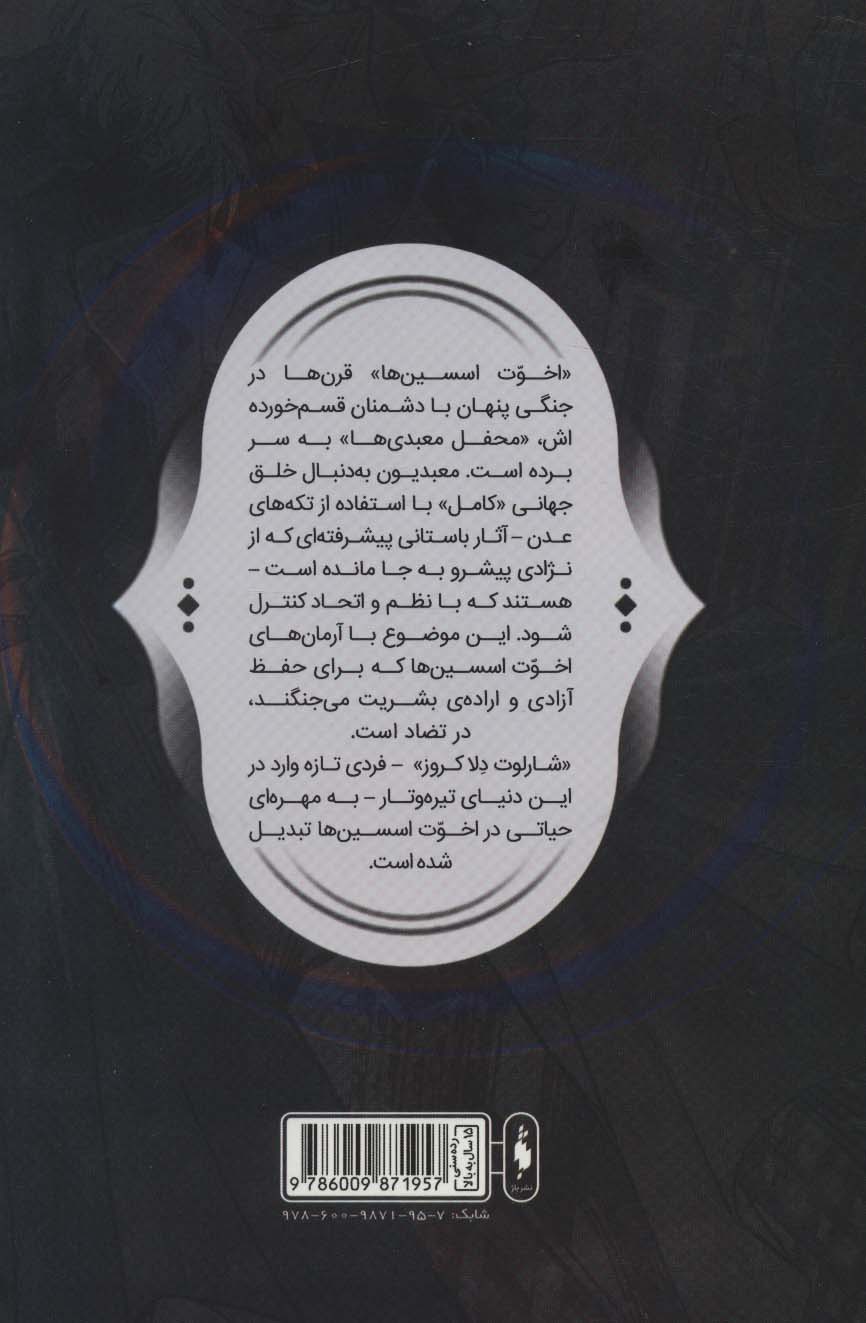 «اخوّت اسسین‌ها» قرن‌ها در
جنگی پنهان با دشمنان قسم‌خورده
اش، «محفل معبدی‌ها» به سر
برده است. معبدیون به‌دنبال خلق
جهانی «کامل» با استفاده از تکه‌های
عدن – آثار باستانی پیشرفته‌ای که از
نژادی پیشرو به جا مانده است –
هستند که با نظم و اتحاد کنترل
شود. این موضوع با آرمان‌های
اخوّت اسسین‌ها که برای حفظ
آزادی و اراده‌ی بشریت می‌جنگند،
در تضاد است.
«شارلوت دِلا کروز» – فردی تازه وارد در
این دنیای تیره‌وتار – به مهره‌ای
حیاتی در اخوّت اسسین‌ها تبدیل
شده است.
رده‌سنی
۱۵ سال به بالا
9 786009 871957
نشر باز
شابک: ۷-۹۵-۹۸۷۱-۶۰۰-۹۷۸